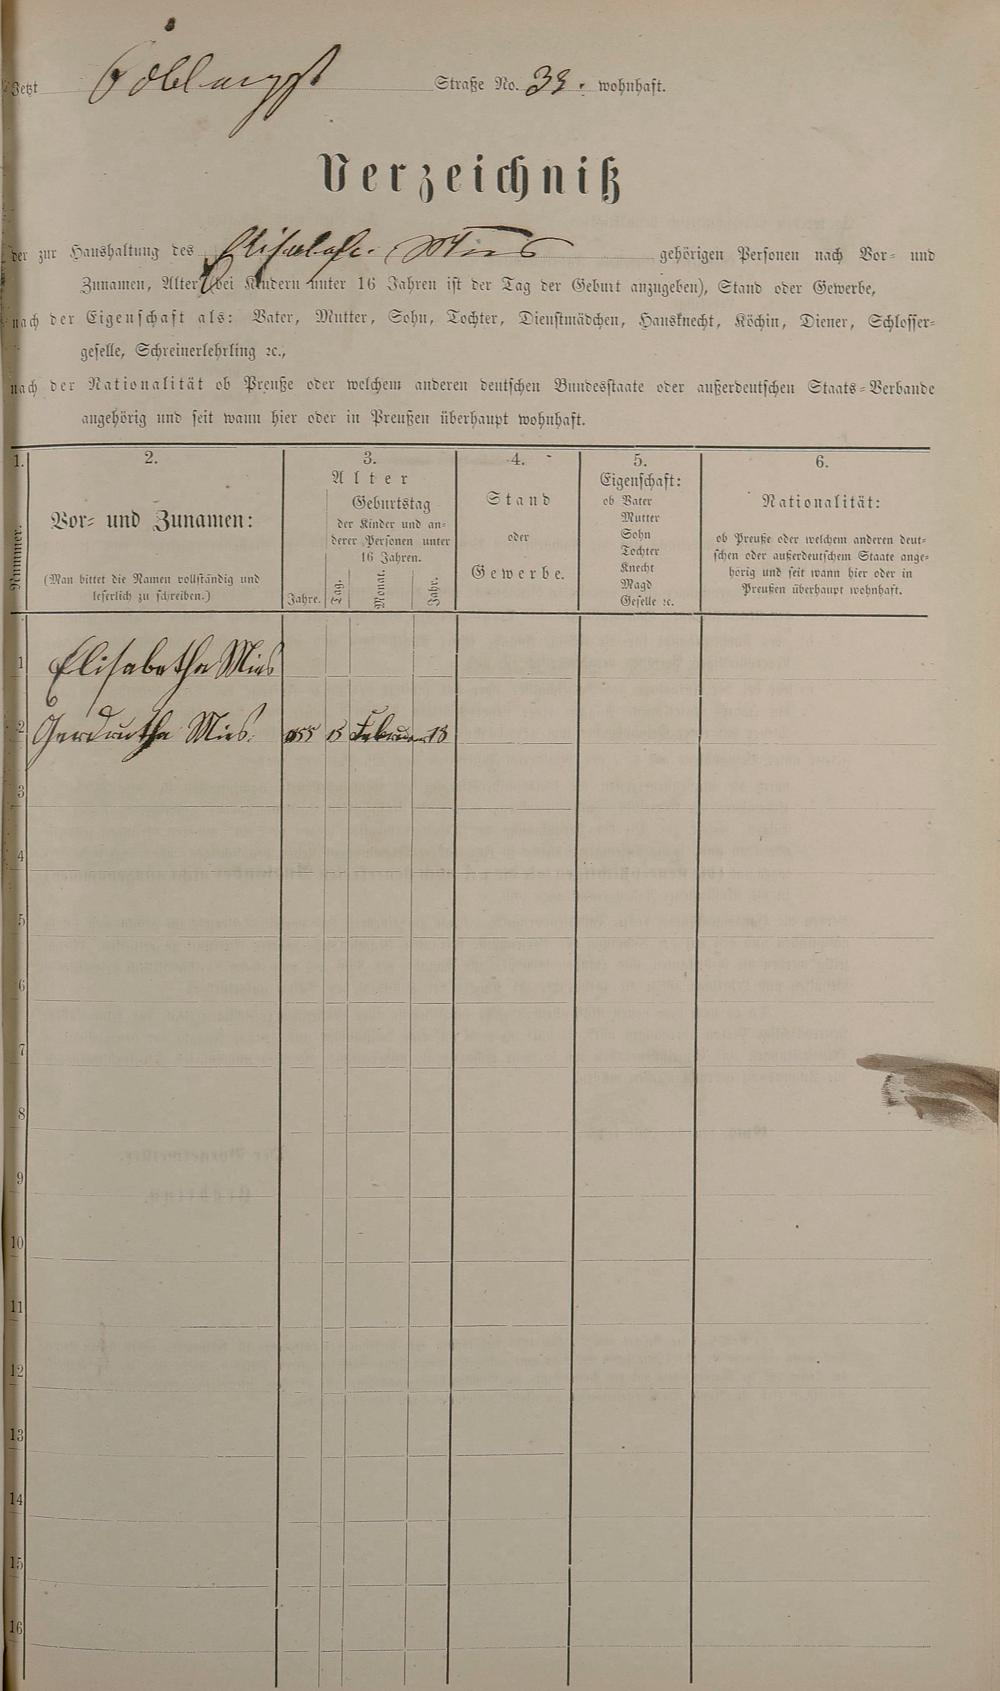 Jetzt Straße No. 33. wohnhaft.
Verzeichniß
der zur Haushaltung des Mies gehörigen Personen nach Vor- und
Zunamen, Alter (bei Kindern unter 16 Jahren ist der Tag der Geburt anzugeben), Stand oder Gewerbe,
nach der Eigenschaft als: Vater, Mutter, Sohn, Tochter, Dienstmädchen, Hausknecht, Köchin, Diener, Schlosser-
geselle, Schreinerlehrling ꝛc.,
nach der Nationalität ob Preuße oder welchem anderen deutschen Bundesstaate oder außerdeutschen Staats-Verbande
angehörig und seit wann hier oder in Preußen überhaupt wohnhaft.
1.
Nummer.
2.
Vor- und Zunamen:
(Man bittet die Namen vollständig und
leserlich zu schreiben.)
3.
Alter
Geburtstag
der Kinder und an-
derer Personen unter
16 Jahren.
Jahre. Tag. Monat. Jahr.
4.
Stand
oder
Gewerbe.
5.
Eigenschaft:
ob Vater
Mutter
Sohn
Tochter
Knecht
Magd
Geselle ꝛc.
6.
Nationalität:
ob Preuße oder welchem anderen deut-
schen oder außerdeutschem Staate ange-
hörig und seit wann hier oder in
Preußen überhaupt wohnhaft.
1 Elisabetha Mies
2 Gerdrutha Mies. 15 Februar 18
3
4
5
6
7
8
9
10
11
12
13
14
15
16